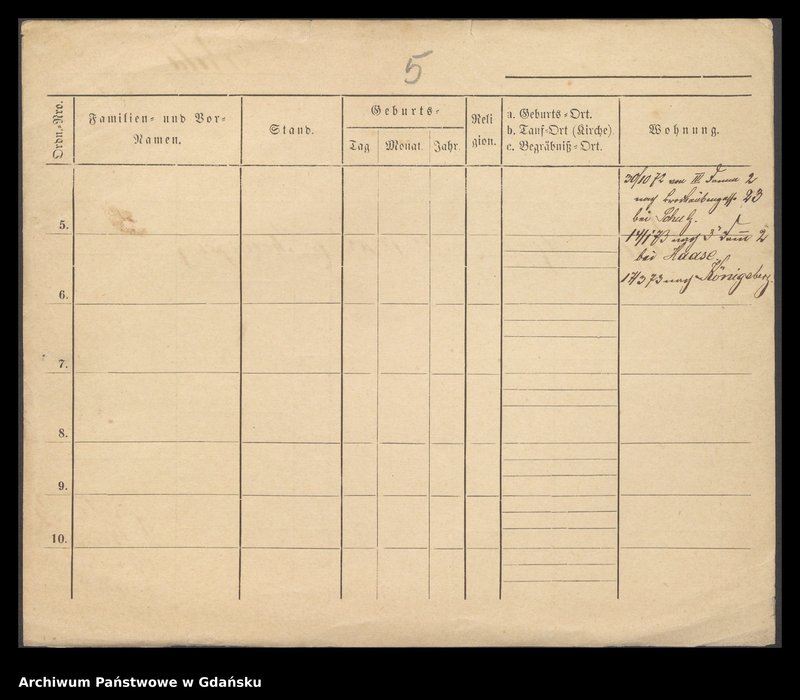 5
Ordn.-Nro.
Familien- und Vor-
Namen.
Stand.
Geburts-
Tag
Monat.
Jahr.
Reli
gion.
a. Geburts-Ort.
b. Tauf-Ort (Kirche).
c. Begräbniß-Ort.
Wohnung.
30/10 72 von III Damm 2
nach 23
bei Schulz.
14/1 73 nach 3 Damm 2
bei Haase.
17/3 73 nach Königsberg.
5.
6.
7.
8.
9.
10.
Archiwum Państwowe w Gdańsku